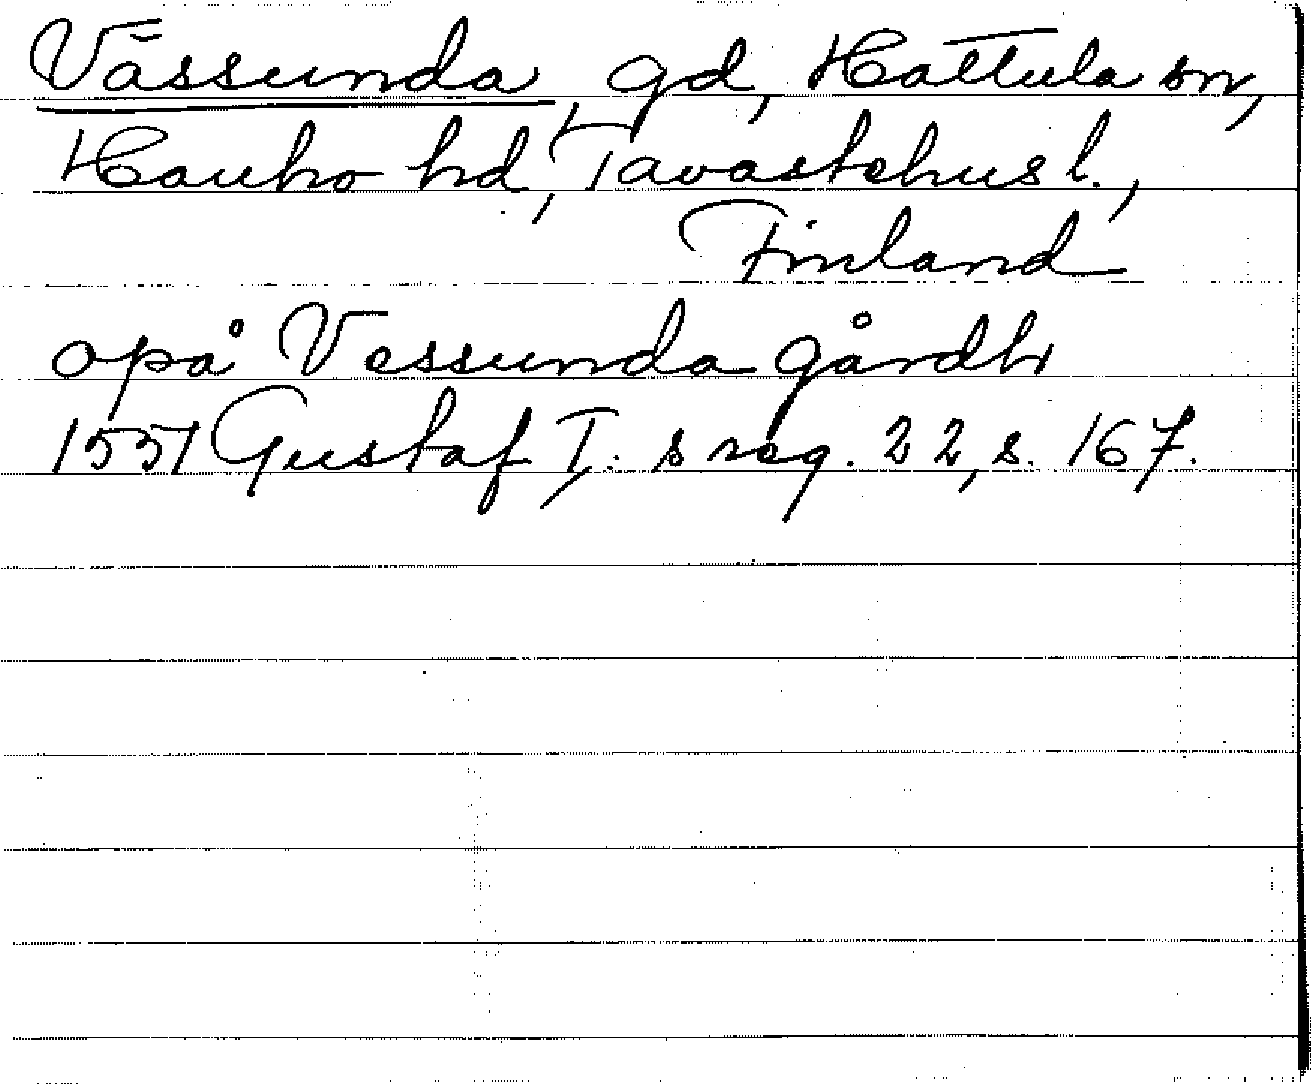 Vässunda, gd, Hattula sn,
Hauho hd, Tavastehus l.,
Finland
opå Vessunda gårdh
1551 Gustaf I. s reg. 22, s. 167.